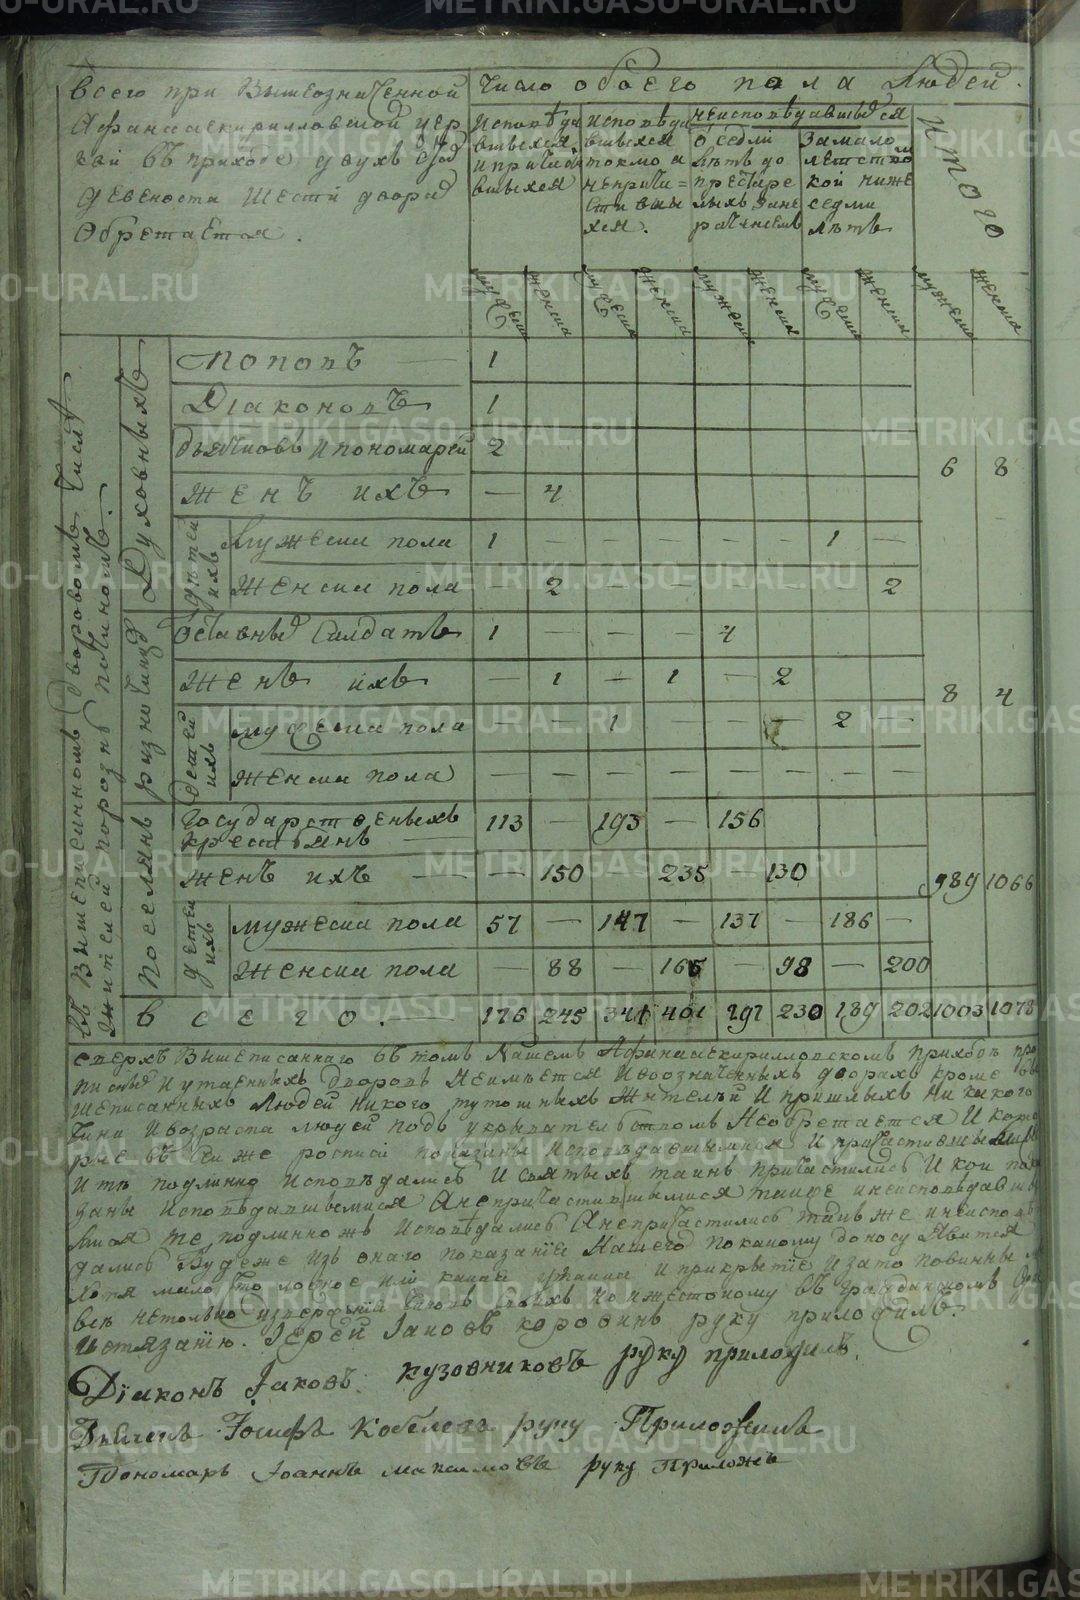 всего при вышеозначенной
Афанасиекирилловской цер
кви въ приходе двухъ сот
девеноста шести дворах
обретается.
число обоего пола людей.
исповѣда
вшыхся
и причаст
вшыхся
исповѣда
вшыхся
токмо а
непричи=
стившы
хся.
неисповѣдавшыхся
о седми
лѣтъ до
престаре
лыхъ зане
рачениемъ
за мало
летством
кои ниже
седми
лѣтъ
итого
мужеска женска мужеска женска мужеска женска мужеска женска мужеска женска
въ вышеписанномъ дворовомъ числѣ
жителей порознь по чиномъ.
Духовныхъ
Поповъ — 1
Диаконовъ 1
дьячковъ и пономарей 2
6 8
женъ ихъ — 4
детей ихъ
мужеска пола 1 — — — — — 1 —
женска пола — 2 — — — — — 2
разночинцов
оставных салдатъ 1 — — — 4
женъ ихъ — 1 — 1 — 2
8 4
детей ихъ
мужеска пола — — 1 — 2 —
женска пола — — — — — — — —
поселянъ
государственыхъ
крестьянъ — 113 — 193 — 156
женъ ихъ — — 150 — 235 — 130
989 1066
детей ихъ
мужеска пола 57 — 147 — 137 — 186 —
женска пола — 88 — 165 — 98 — 200
всего. — 176 245 341 401 297 230 189 202 1003 1078
сверхъ вышеписаннаго въ томъ нашемъ Афанасиекирилловскомъ приходѣ про
писных и утаенныхъ дворовъ неимѣется и вооозначенныхъ дворахъ кроме вы
шеписанныхъ людей никого тутошныхъ жителей и пришлыхъ никакого
чина и возраста людей подъ укрывателством необретается и кото
рые въ сей же росписи показаны исповѣдавшымися и причастившымися
и тѣ подлинно исповѣдались и святыхъ таинъ причастились и кои пока
заны исповѣдавшымися а непричастившымися также и неисповѣдавши
мися те подлинножъ исповѣдались а непричастились также и неисповѣ
дались буде же изъ онаго показания нашего по какому доносу явится
хотя мало что ложное или какая утайка и прикрытие и за то повинны
истязанию. Иерей Иаковъ коровинъ руку приложилъ.
Диаконъ Iаковъ кузовниковъ руку приложилъ.
Дьячекъ Iосифъ Кобелевъ руку Приложилъ
Пономарь Iоаннъ максимовъ руку Приложъ
METRIKI.GASO-URAL.RU